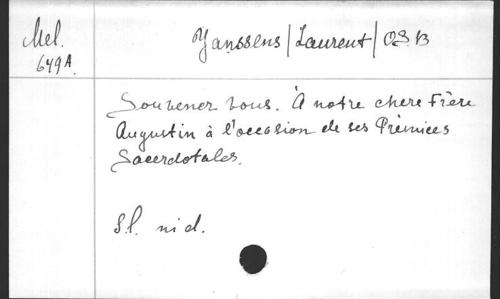 Mel.
649A.
Janssens/Laurent/O.S.B
Souvenez vous. À notre chere Frère
Augustin à l'occasion de ses Prémices
Sacerdotales.
S.l. ni d.